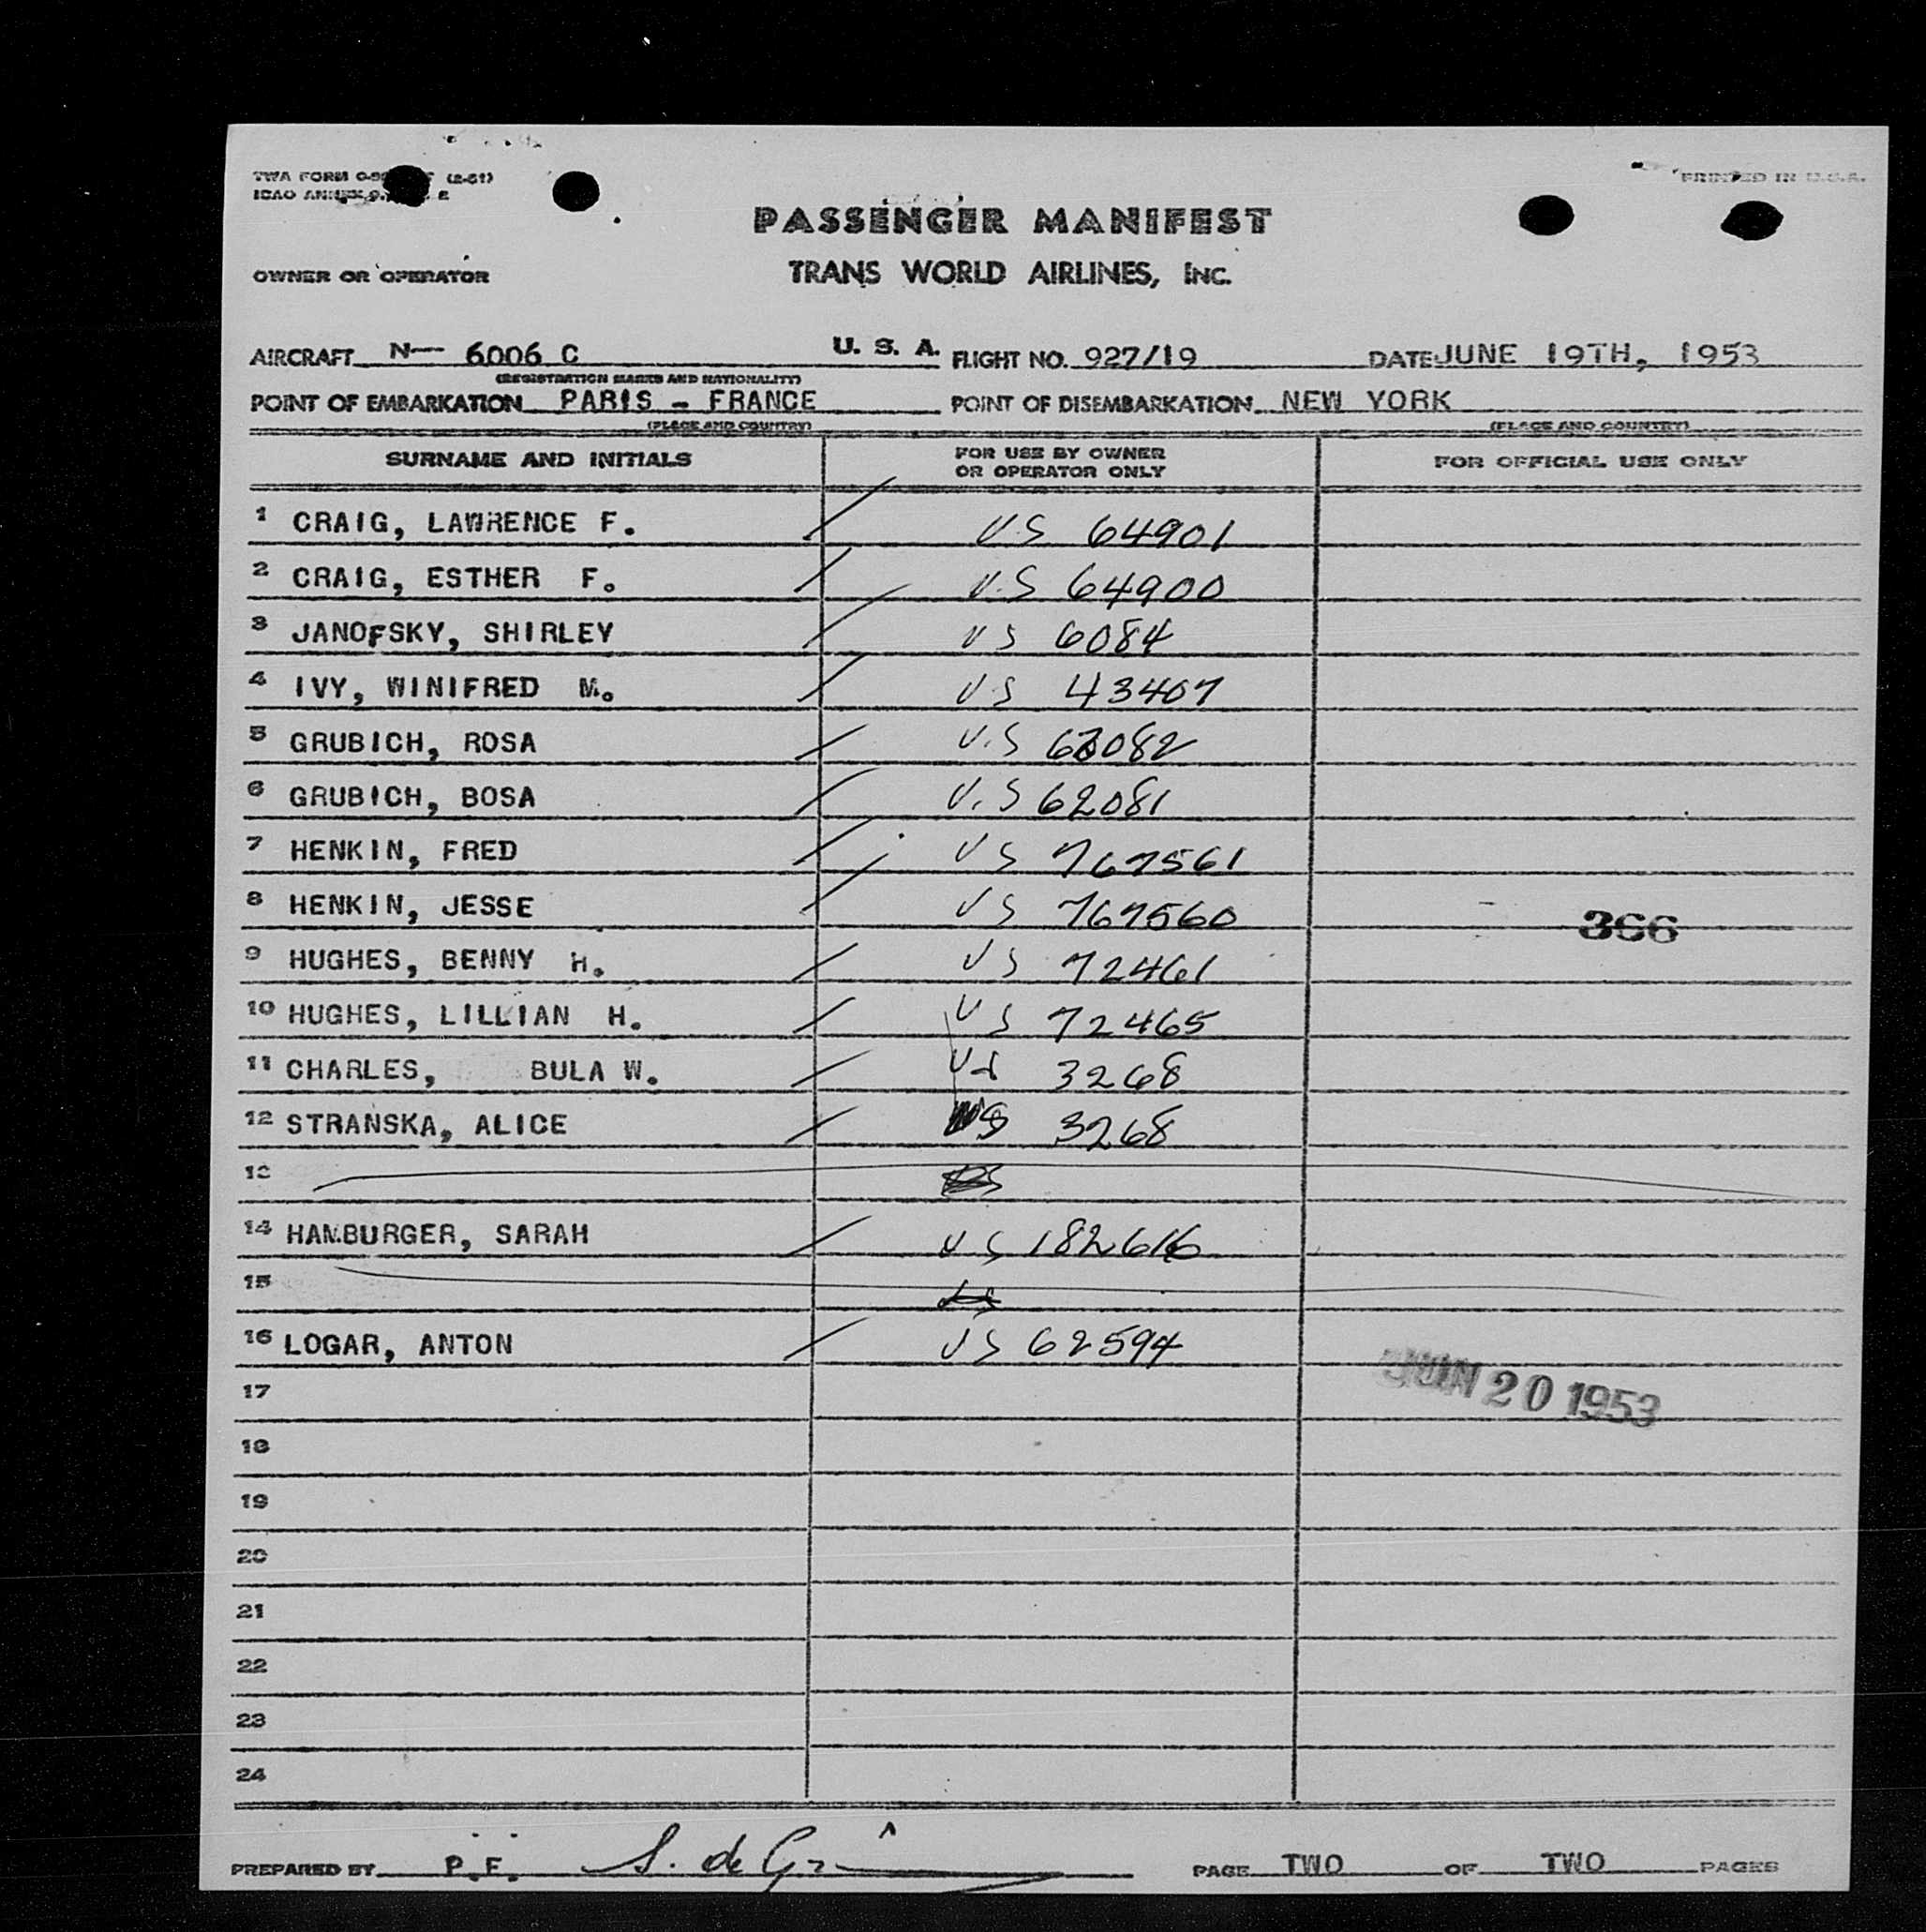 TWA FORM (2-51)
PRINTED IN U.S.A.
ICAO ANNEX 9. E
PASSENGER MANIFEST
OWNER OR OPERATOR TRANS WORLD AIRLINES, INC.
AIRCRAFT N— 6006 C U. S. A. FLIGHT NO. 927/19 DATE JUNE 19TH, 1953
(REGISTRATION MARKS AND NATIONALITY)
POINT OF EMBARKATION PARIS - FRANCE POINT OF DISEMBARKATION NEW YORK
(PLACE AND COUNTRY) (PLACE AND COUNTRY)
SURNAME AND INITIALS FOR USE BY OWNER OR OPERATOR ONLY FOR OFFICIAL USE ONLY
1 CRAIG, LAWRENCE F. U.S 64901
2 CRAIG, ESTHER F. U.S 64900
3 JANOFSKY, SHIRLEY US 6084
4 IVY, WINIFRED M. U.S 43407
5 GRUBICH, ROSA U.S 082
6 GRUBICH, BOSA U.S 62081
7 HENKIN, FRED US 767561
8 HENKIN, JESSE US 767560
366
9 HUGHES, BENNY H. US 72461
10 HUGHES, LILLIAN H. US 72465
11 CHARLES, BULA W. US 3268
12 STRANSKA, ALICE US 3268
13
14 HAMBURGER, SARAH US 182616
15
16 LOGAR, ANTON US 62594
JUN 20 1953
17
18
19
20
21
22
23
24
PREPARED BY P.F. S. de PAGE TWO OF TWO PAGES